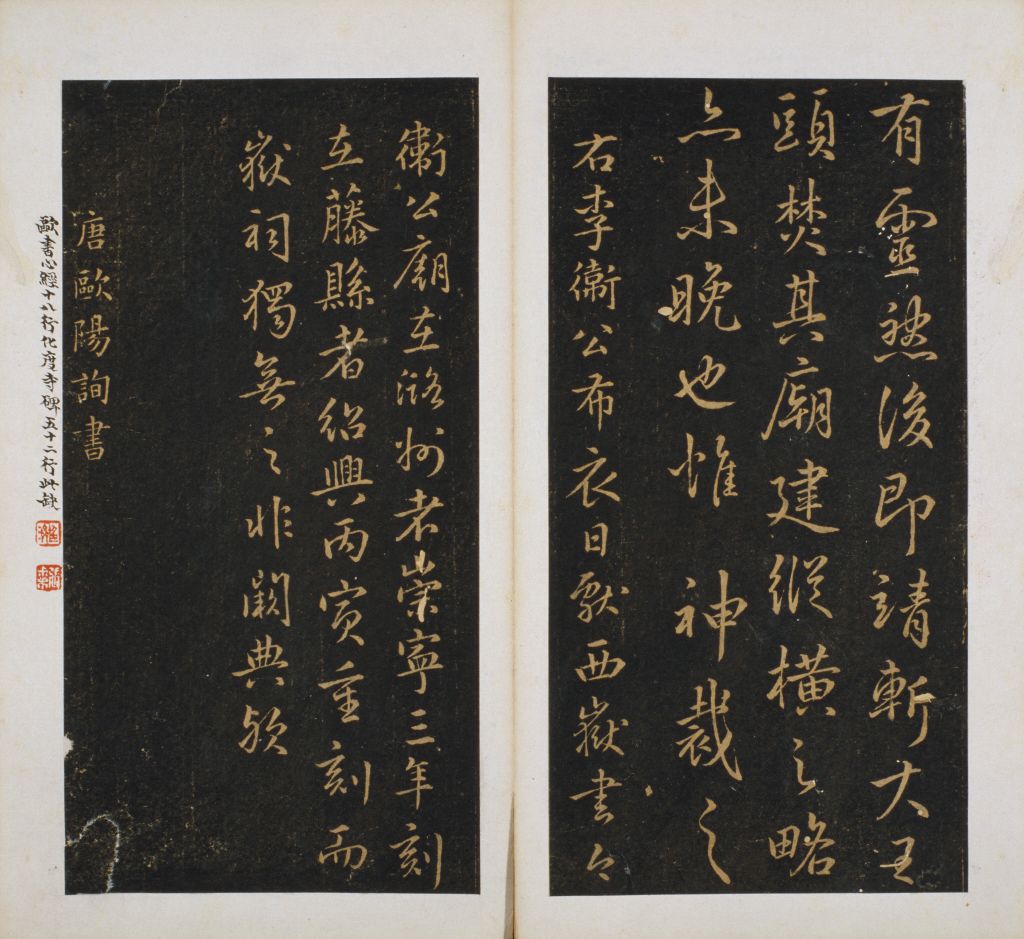 有靈然後即請斬大王
頭焚其廟建縱橫之略
亦未晚也惟神裁之
右李衛公布衣日獻西嶽書今
衛公廟在潞州者崇寧三年刻
在藤縣者紹興丙寅重刻而
嶽祠獨無之非闕典歟
唐歐陽詢書
歐書心經十八行化度寺碑五十二行此缺